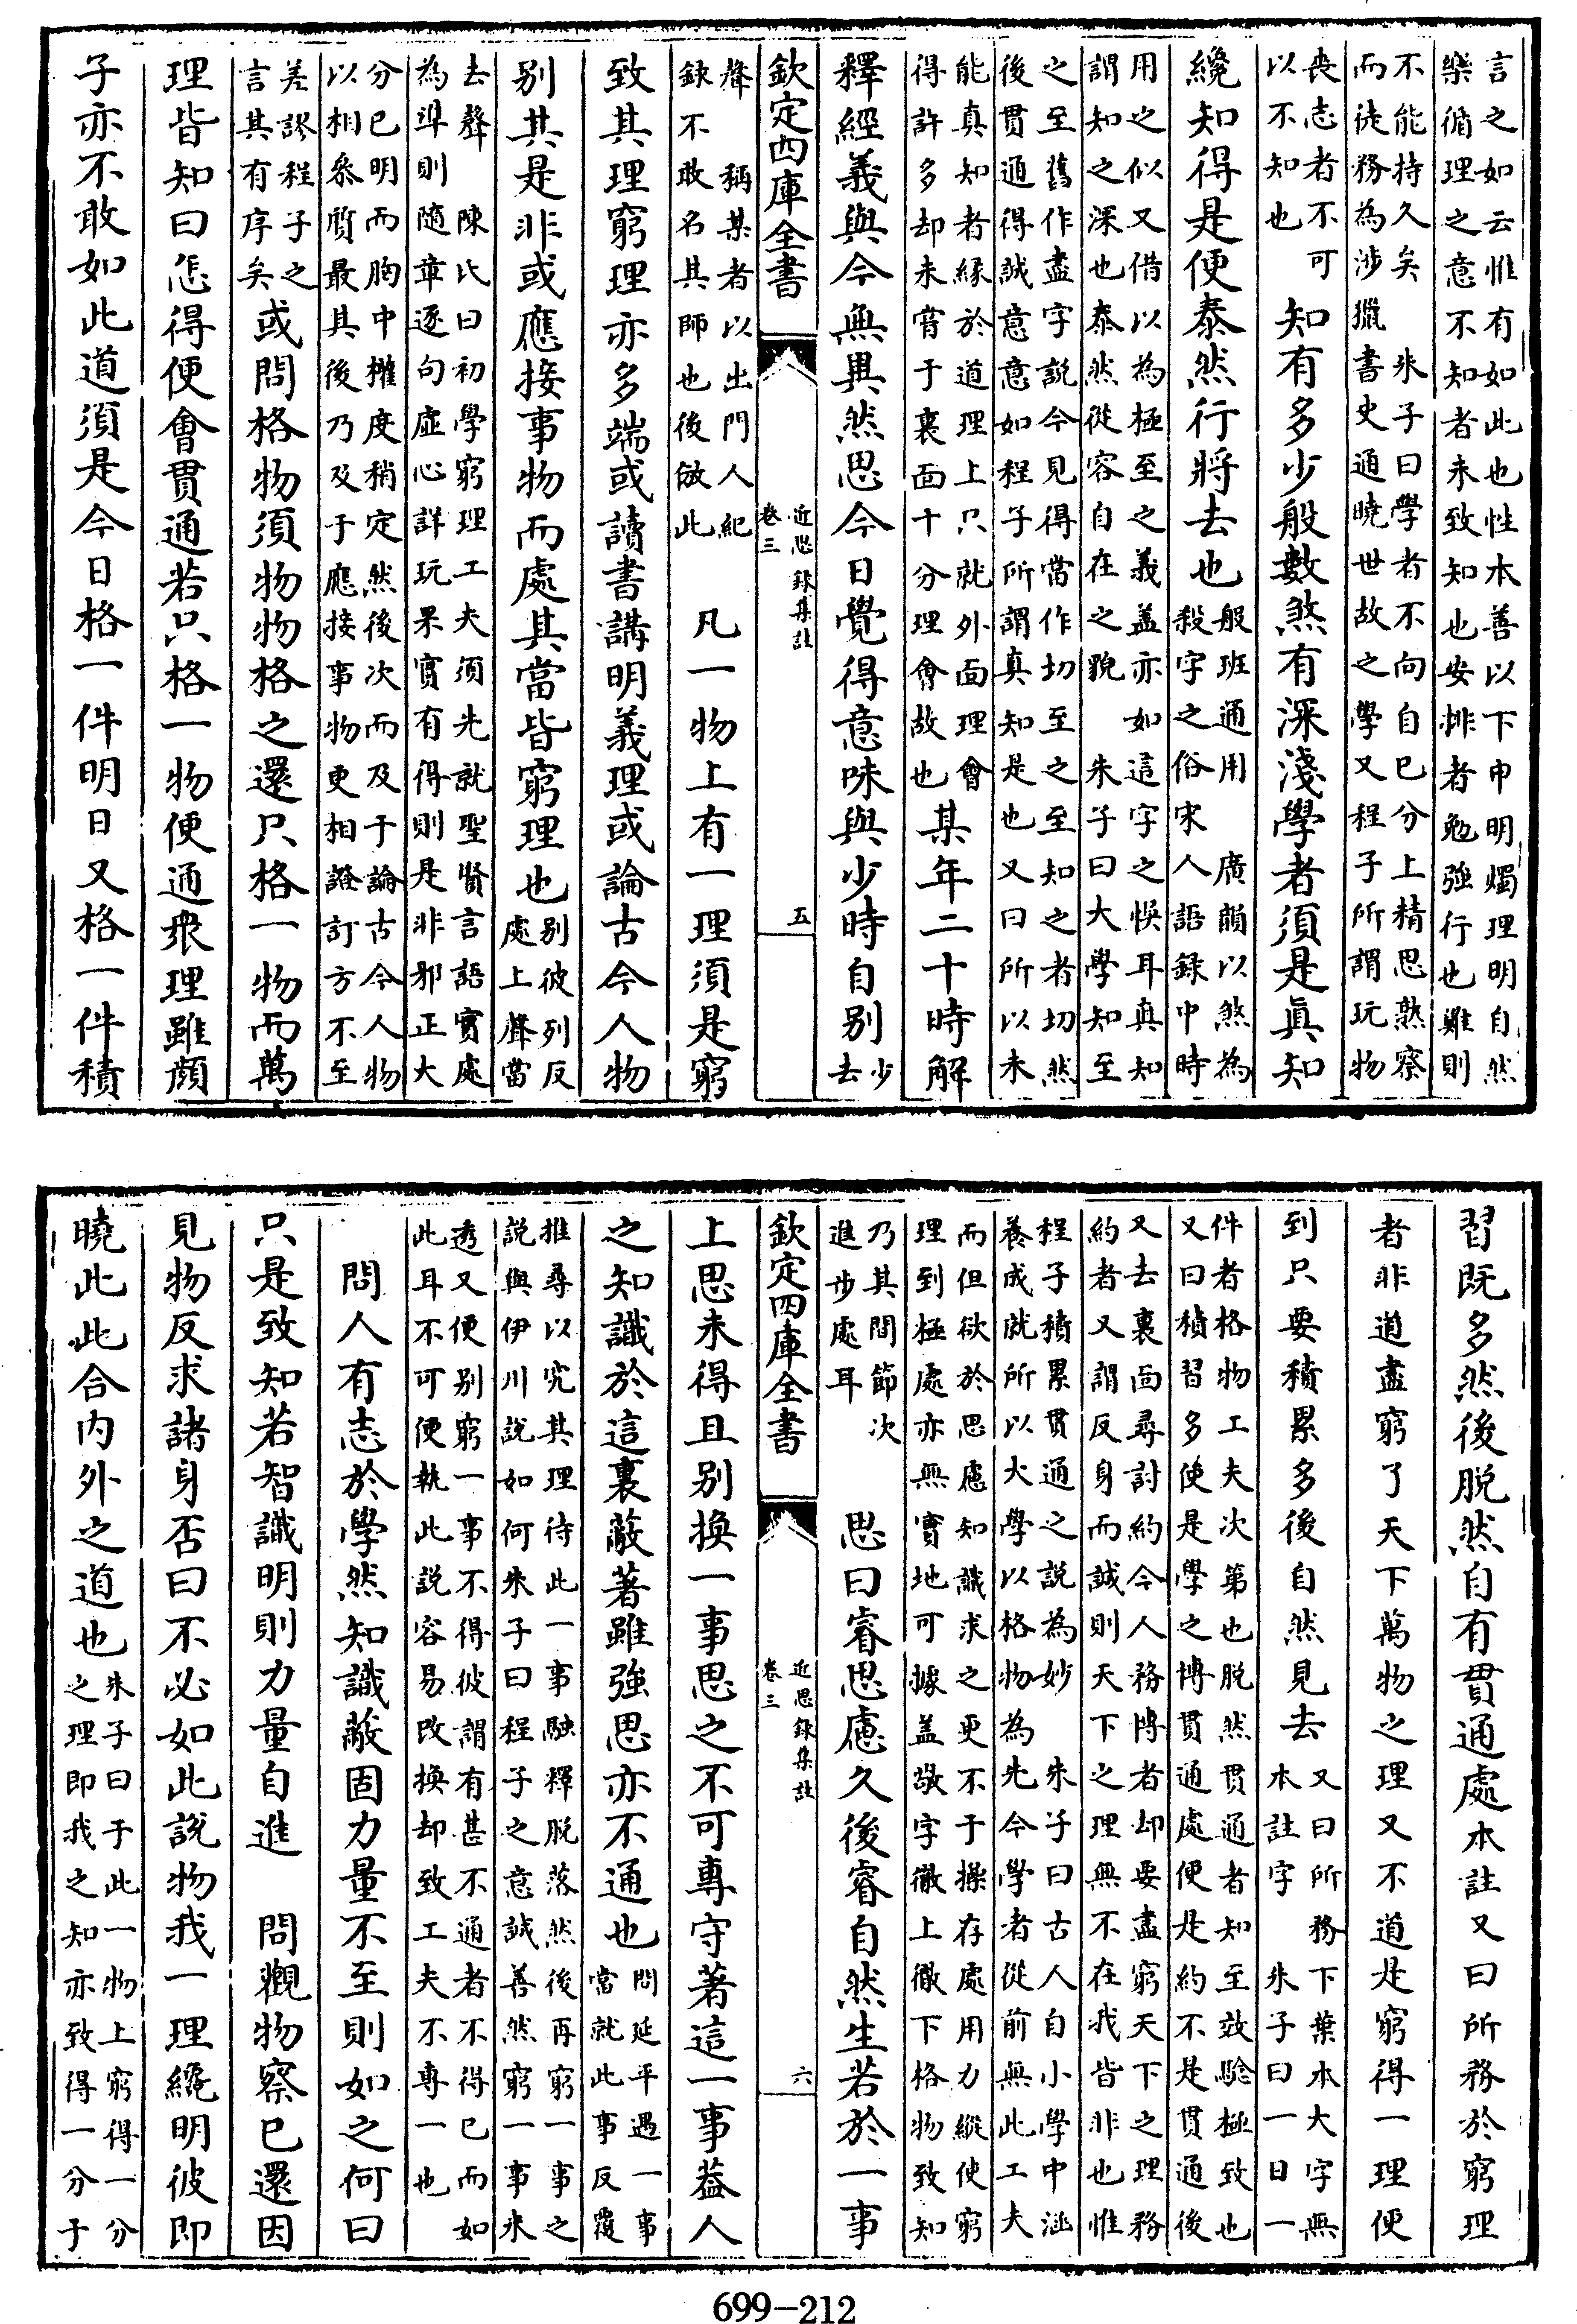 言之如云惟有如此也性本善以下申明燭理明自然
樂循理之意不知者未致知也安排者勉強行也難則
不能持久矣　朱子曰學者不向自已分上精思熟察
而徒務為涉獵書史通曉世故之學又程子所謂玩物
喪志者不可
以不知也
知有多少般數煞有深淺學者須是真知
纔知得是便泰然行將去也
般班通用　廣韻以煞為
殺字之俗宋人語録中時
用之似又借以為極至之義蓋亦如這字之悞耳真知
謂知之深也泰然從容自在之貌　朱子曰大學知至
之至舊作盡字説今見得當作切至之至知之者切然
後貫通得誠意意如程子所謂真知是也又曰所以未
能真知者緣於道理上只就外面理會
得許多却未嘗于裏面十分理會故也
某年二十時解
釋經義與今無異然思今日覺得意味與少時自别
少
去
欽定四庫全書
近思録集註
卷三
五
聲　稱某者以出門人紀
録不敢名其師也後倣此
凡一物上有一理須是窮
致其理窮理亦多端或讀書講明義理或論古今人物
别其是非或應接事物而處其當皆窮理也
别彼列反
處上聲當
去聲　陳氏曰初學窮理工夫須先就聖賢言語實處
為準則隨章逐句虚心詳玩果實有得則是非邪正大
分已明而胸中權度稍定然後次而及于論古今人物
以相參質最其後乃及于應接事物更相證訂方不至
差謬程子之
言其有序矣
或問格物須物物格之還只格一物而萬
理皆知曰怎得便會貫通若只格一物便通衆理雖顔
子亦不敢如此道須是今日格一件明日又格一件積
習既多然後脱然自有貫通處本註又曰所務於窮理
者非道盡窮了天下萬物之理又不道是窮得一理便
到只要積累多後自然見去
又曰所務下葉本大字無
本註字　朱子曰一日一
件者格物工夫次第也脱然貫通者知至效驗極致也
又曰積習多使是學之博貫通處便是約不是貫通後
又去裏面尋討約今人務博者却要盡窮天下之理務
約者又謂反身而誠則天下之理無不在我皆非也惟
程子積累貫通之説為妙　朱子曰古人自小學中涵
養成就所以大學以格物為先今學者從前無此工夫
而但欲於思慮知識求之更不于操存處用力縱使窮
理到極處亦無實地可據蓋敬字徹上徹下格物致知
乃其間節次
進步處耳
思曰睿思慮久後睿自然生若於一事
欽定四庫全書
近思録集註
卷三
六
上思未得且别換一事思之不可專守著這一事葢人
之知識於這裏蔽著雖強思亦不通也
問延平遇一事
當就此事反覆
推尋以究其理待此一事融釋脱落然後再窮一事之
説與伊川説如何朱子曰程子之意誠善然窮一事未
透又便别窮一事不得彼謂有甚不通者不得已而如
此耳不可便執此説容易改換却致工夫不專一也
問人有志於學然知識蔽固力量不至則如之何曰
只是致知若智識明則力量自進　問觀物察已還因
見物反求諸身否曰不必如此説物我一理纔明彼即
曉此此合内外之道也
朱子曰于此一物上窮得一分
之理即我之知亦致得一分于
699-212